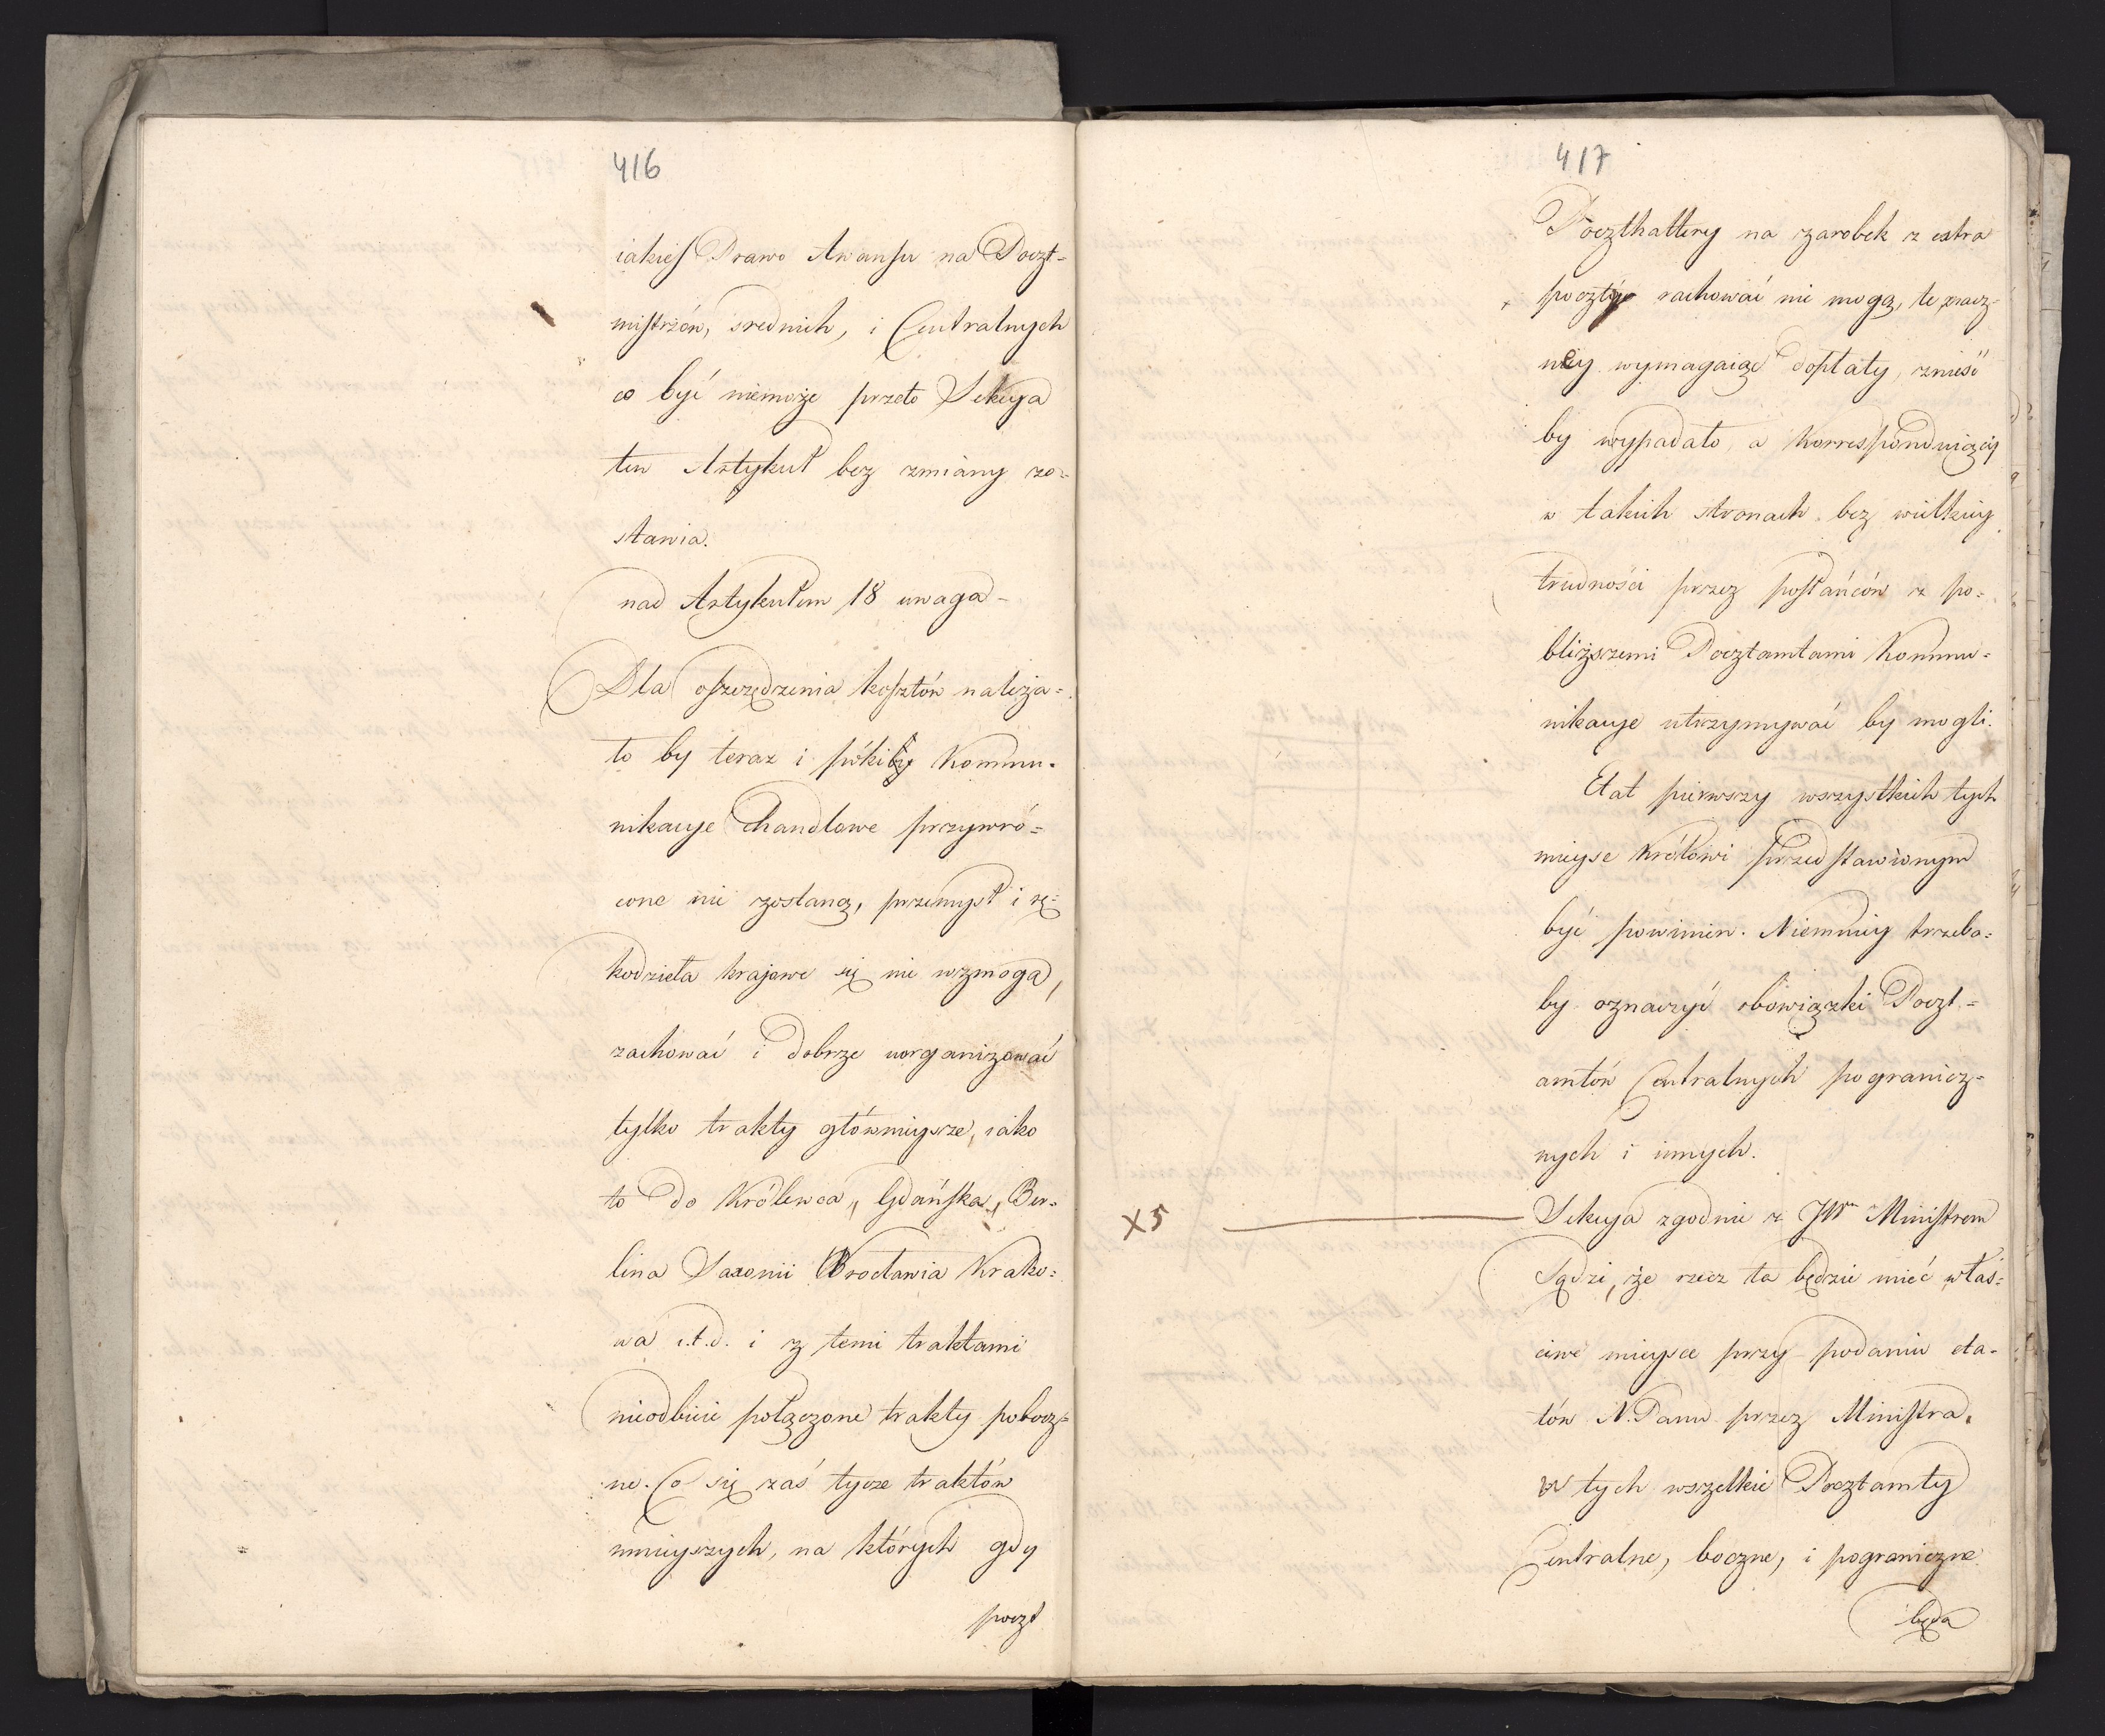 416
iakieś Prawo Awansu na Poczt=
mistrzów, srednich, i Centralnych
co być niemoże przeto Sekcya
ten Artykuł bez zmiany zo=
stawia.
nad Artykułem 18 uwaga -
Dla oszczędzenia kosztów należa=
ło by teraz i pókiby Kommu=
nikacye Chandlowe przywró=
cone nie zostaną, przemysł i rę=
kodzieła krajowe się nie wzmogą,
zachować i dobrze uorganizować
tylko trakty głównieysze, iako
to do Królewca, Gdańska, Ber=
lina Saxonii Wrocławia Krako=
wa i.t.d. i z temi traktami
nieodbicie połączone trakty pobocz=
ne. Co się zaś tycze traktów
mnieyszych, na których gdy
poczt
417
Poczthallery na zarobek z extra
poczty rachować nie mogą, te znacz=
ney wymagaiąc dopłaty, znieść
by wypadało, a Korrespondniący
w takich stronach bez wielkiey
trudności przez posłańców z po=
bliższemi Pocztamtami Kommu=
nikacye utrzymywać by mogli.
Etat pierwszy wszystkich tych
mieysc Królowi przedstawionym
być powinien. Niemniey trzeba=
by oznaczyć obowiązki Poczt=
amtów Centralnych pogranicz=
nych i innych.
X5 Sekcya zgodnie z JWm Ministrem
sądzi, że rzecz ta będzie mieć właś=
ciwe mieysce przy podaniu eta=
tów N. Panu przez Ministra.
w tych wszelkie Pocztamty
Centralne, boczne, i pograniczne
będą